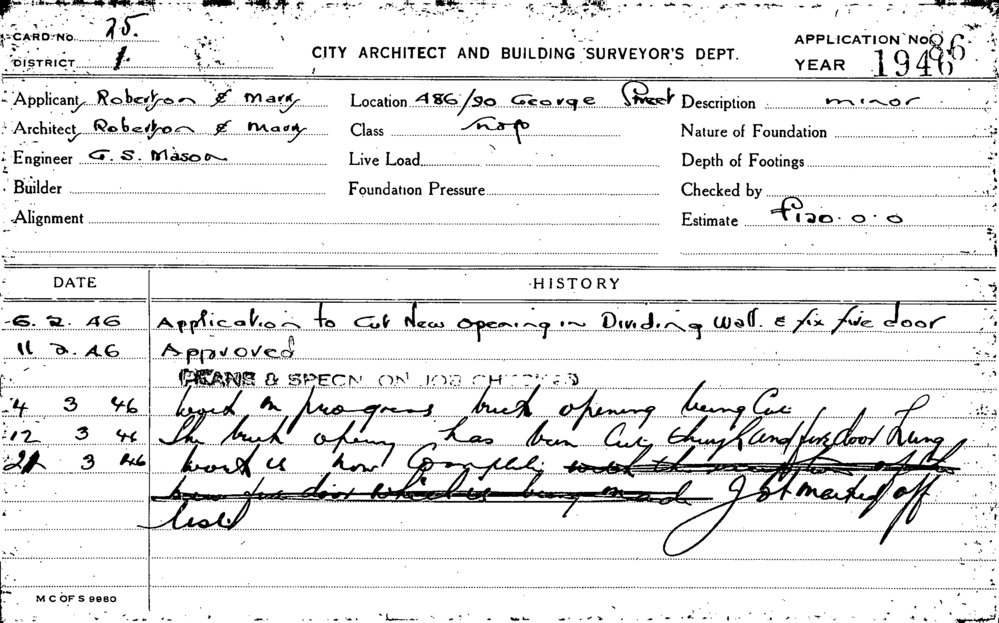 CARD No. 25.
DISTRICT 1.
CITY ARCHITECT AND BUILDING SURVEYOR'S DEPT.
APPLICATION No. 86
YEAR 1946
Applicant Robertson & Marks Location 486/90 George Street Description minor
Architect Robertson & Marks Class Shop Nature of Foundation
Engineer G. S. Mason Live Load Depth of Footings
Builder Foundation Pressure Checked by
Alignment Estimate £120.0.0
DATE HISTORY
6. 2. 46 Application to Cut New opening in Dividing Wall. & fix fire door
11 2. 46 Approved
PLANS & SPECN ON JOB CHECKED
4 3 46 Work in progress brick opening being Cut
12 3 46 The brick opening has been Cut through and fire door hung
21 3 46 Work is now Complete
fire door which is being Job marked off
list
M C OF S 9980